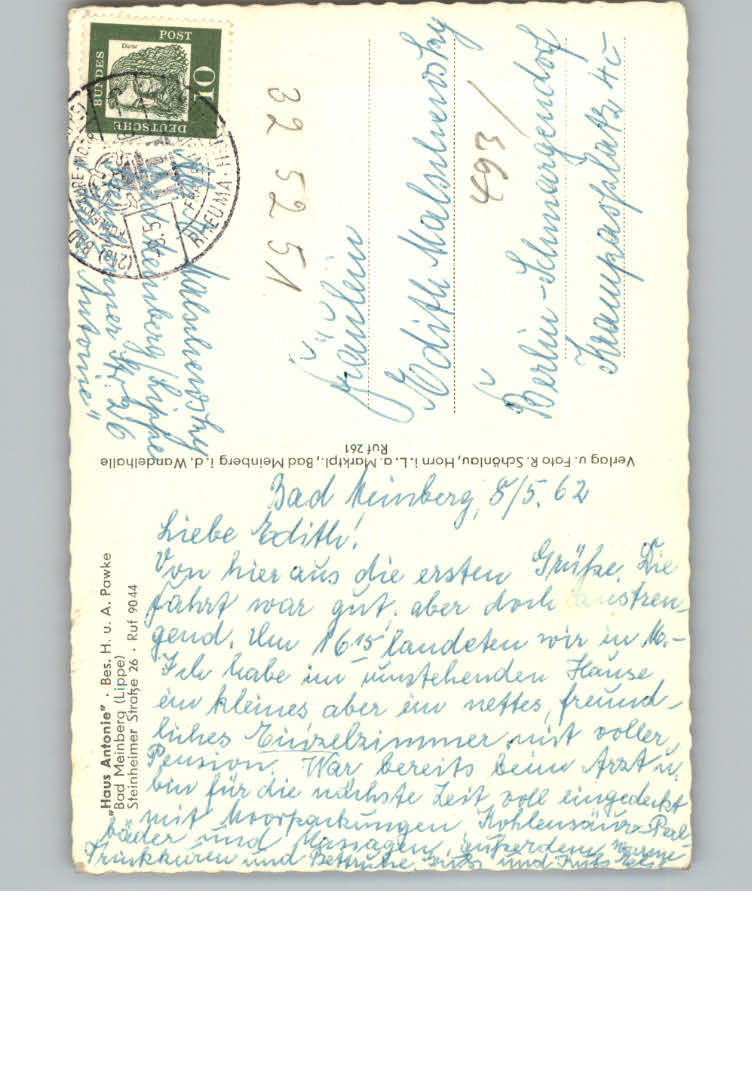 "Haus Antonie" · Bes. H. u. A. Pawke
Bad Meinberg (Lippe)
Steinheimer Straße 26 · Ruf 9044
Bad Meinberg, 8/5. 62
Liebe Edith!
Von hier aus die ersten Grüße. Die
Fahrt war gut, aber doch anstren-
gend. Um 16 15 landeten wir in M.-
Ich habe im umstehenden Hause
ein kleines aber ein nettes, freund-
liches Einzelzimmer mit voller
Pension. War bereits beim Arzt u.
bin für die nächste Zeit voll eingedeckt
mit Moorpackungen, Kohlensäure-Perl-
bäder und Massagen, außerdem
Trinkkuren und Bettruhe. Gruß und Kuß
Verlag u. Foto R. Schönlau, Horn i. L. a. Marktpl., Bad Meinberg i. d. Wandelhalle
Ruf 261
DEUTSCHE
BUNDES
POST
10
Dürer
(21a) BAD
RHEUMA
Malschewsky
Meinberg/Lippe
Str. 26
Antonie"
32 52 51
493/
Fräulein
Edith Malschewsky
Berlin-Schmargendorf
Krampasplatz 4c